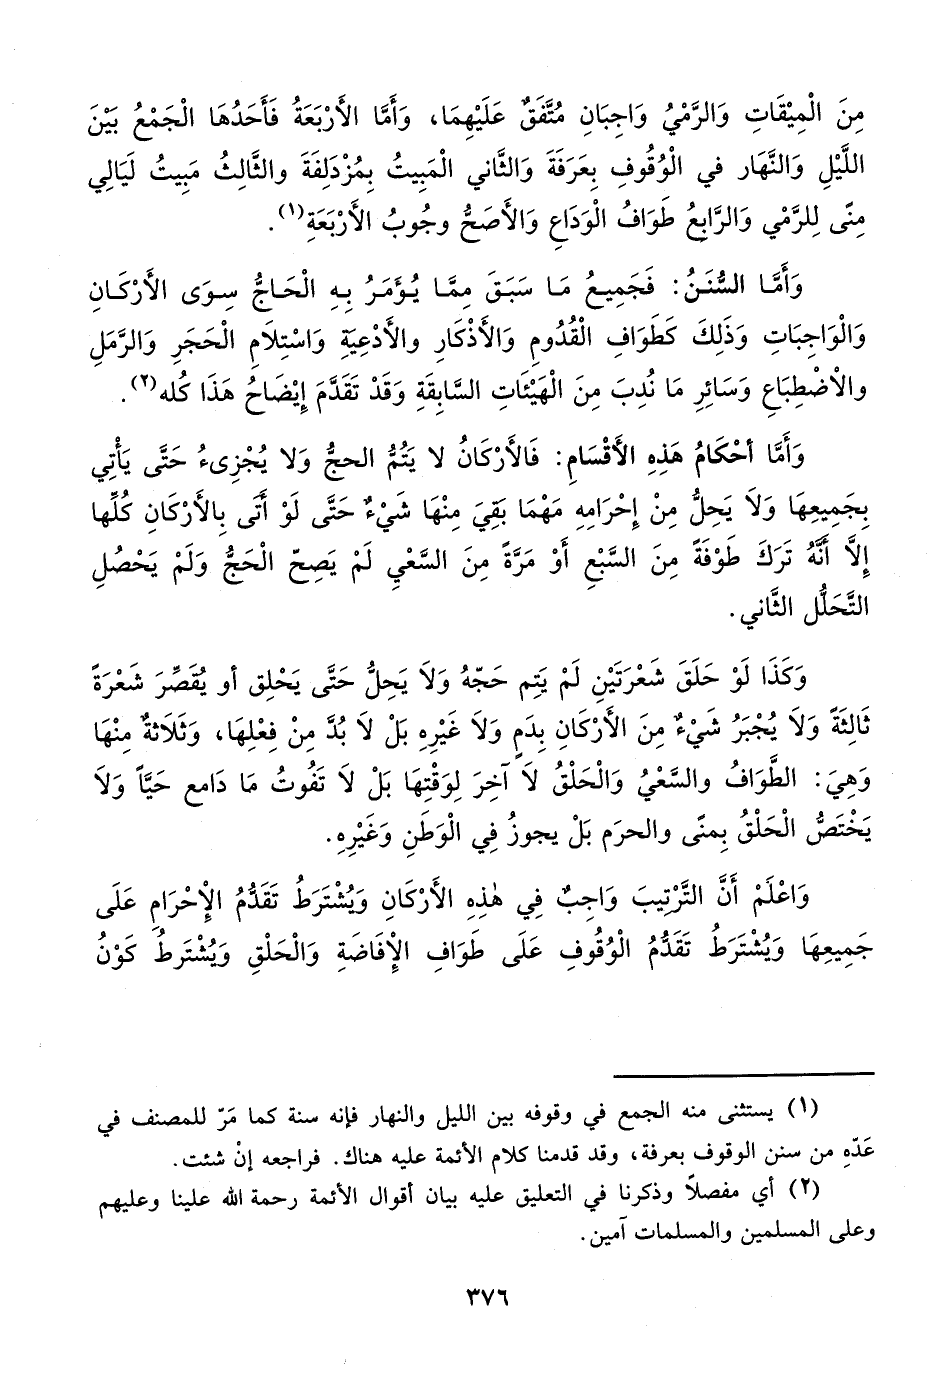 مِنَ الْمِيْقَاتِ وَالرَّمْيُ وَاجِبَانِ مُتَّفَقٌ عَلَيْهِمَا، وَأَمَّا الأَرْبَعَةُ فَأَحَدُهَا الْجَمْعُ بَيْنَ
اللَّيْلِ وَالنَّهَارِ في الْوُقُوفِ بِعَرَفَةَ وَالثَّاني الْمَبِيتُ بِمُزْدَلِفَةَ والثَّالِثُ مَبِيتُ لَيَالِي
مِنًى لِلرَّمْي وَالرَّابِعُ طَوَافُ الْوَدَاعِ وَالأَصَحُّ وجُوبُ الأَرْبَعَةِ(١).
وَأَمَّا السُّنَنُ: فَجَمِيعُ مَا سَبَقَ مِمَّا يُؤمَرُ بِهِ الْحَاجُّ سِوَى الأَرْكَانِ
وَالْوَاجِبَاتِ وَذَلِكَ كَطَوَافِ الْقُدُومِ وَالأَذْكَارِ والأَدْعِيَةِ وَاسْتِلَامِ الْحَجَرِ وَالرَّمَلِ
والاْضْطِبَاعِ وَسَائِرِ مَا نُدِبَ مِنَ الْهَيْئَاتِ السَّابِقَةِ وَقَدْ تَقَدَّمَ إِيْضَاحُ هَذَا كُله(٢).
وَأَمَّا أحْكَامُ هَذِهِ الأَقْسَامِ: فَالأَرْكَانُ لا يَتُمُّ الحجُّ وَلا يُجْزِىءُ حَتَّى يَأْتِي
بِجَمِيعِهَا وَلَا يَحِلُّ مِنْ إِحْرَامِهِ مَهْمَا بَقِيَ مِنْهَا شَيْءٌ حَتَّى لَوْ أَتَى بِالأَرْكَانِ كُلِّها
إِلَّا أَنَّهُ تَرَكَ طَوْفَةً مِنَ السَّبْعِ أَوْ مَرَّةً مِنَ السَّعْيِ لَمْ يَصِحّ الْحَجُّ وَلَمْ يَحْصُلِ
التَّحَلُّل الثَّاني.
وَكَذَا لَوْ حَلَقَ شَعْرَتَيْنِ لَمْ يَتِم حَجّهُ وَلَا يَحِلُّ حَتَّى يَحْلِق أو يُقَصِّرَ شَعْرَةً
ثَالِثَةً وَلَا يُجْبَرُ شَيْءٌ مِنَ الأَرْكَانِ بِدَمٍ وَلَا غَيْرِهِ بَلْ لَا بُدَّ مِنْ فِعْلِهَا، وَثَلَاثةٌ مِنْهَا
وَهِيَ: الطَّوَافُ والسَّعْيُ وَالْحَلْقُ لَا آخِرَ لِوَقْتِهَا بَلْ لَا تَفُوتُ مَا دَامع حَيَّاً وَلَا
يَخْتَصُّ الْحَلْقُ بِمنًى والحرَم بَلْ يجوزُ فِي الْوَطَنِ وَغَيْرِهِ.
وَاعْلَمْ أَنَّ التَّرْتِيبَ وَاجِبٌ فِي هٰذِهِ الأَرْكَانِ وَيُشْتَرَطُ تَقَدُّمُ الإِحْرَامِ عَلَى
جَمِيعِهَا وَيُشْتَرَطُ تَقَدُّمُ الْوُقُوفِ عَلَى طَوَافِ الإِفَاضَةِ وَالْحَلْقِ وَيُشْتَرطُ كَوْنُ
(١) يستثنى منه الجمع في وقوفه بين الليل والنهار فإنه سنة كما مَرّ للمصنف في
عَدّهِ من سنن الوقوف بعرفة، وقد قدمنا كلام الأئمة عليه هناك. فراجعه إنْ شئت.
(٢) أي مفصلاً وذكرنا في التعليق عليه بيان أقوال الأئمة رحمة الله علينا وعليهم
وعلى المسلمين والمسلمات آمين.
٣٧٦